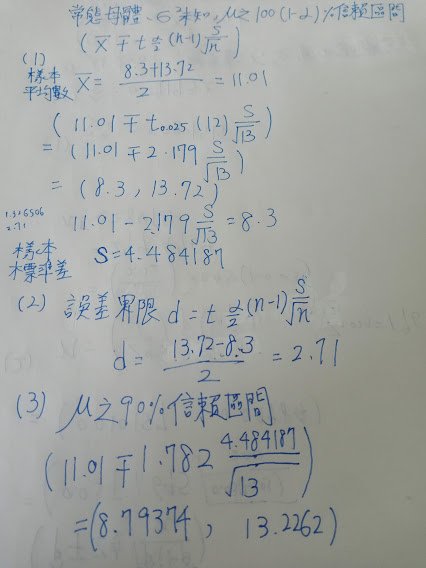 常態母體、σ²未知，μ之100(1-α)%信賴區間
(X̄ ∓ t α/2 (n-1) S/√n)
(1)
樣本平均數 X̄ = (8.3+13.72)/2 = 11.01
(11.01 ∓ t0.025 (12) S/√13)
= (11.01 ∓ 2.179 S/√13)
= (8.3, 13.72)
11.01 - 2179 S/√13 = 8.3
2.71
樣本標準差 S=4.484187
(2) 誤差界限 d = t α/2 (n-1) S/√n
d = (13.72-8.3)/2 = 2.71
(3) μ之90%信賴區間
(11.01 ∓ 1.782 4.484187/√13)
=(8.79374, 13.2262)